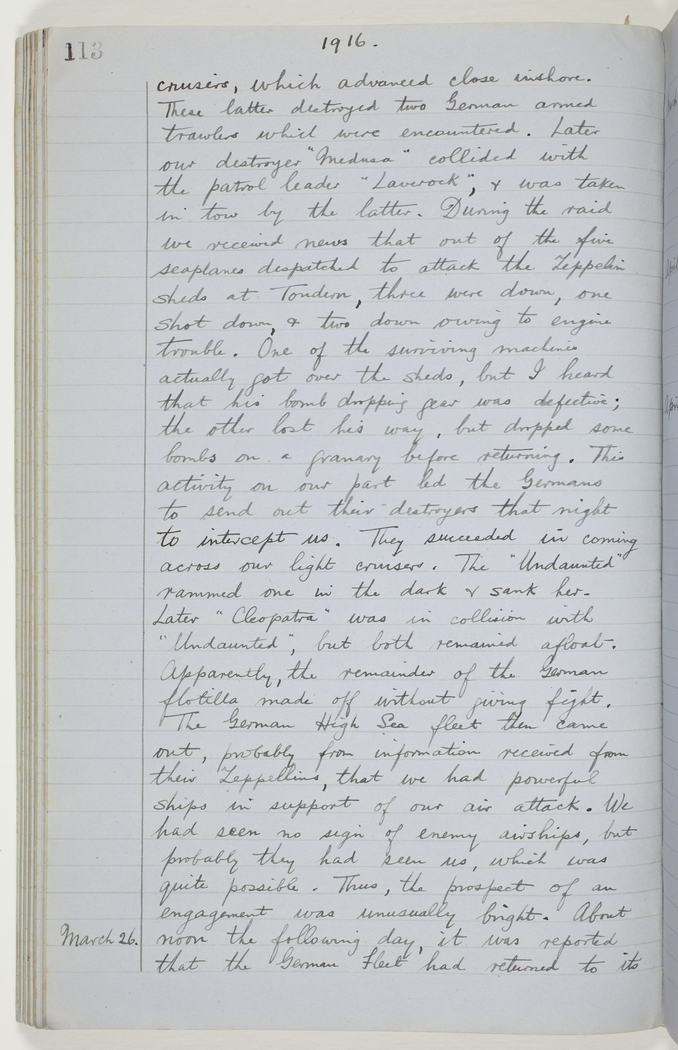 113
1916.
cruisers, which advanced close inshore.
These latter destroyed two German armed
trawlers which were encountered. Later
our destroyer "Medusa" collided with
the patrol leader "Laverock", & was taken
in tow by the latter. During the raid
we received news that out of the five
seaplanes despatched to attack the Zeppelin
sheds at Tondern, three were down, one
shot down, & two down owing to engine
trouble. One of the surviving machines
actually got over the sheds, but I heard
that his bomb dropping gear was defective;
the other lost his way, but dropped some
bombs on a granary before returning. This
activity on our part led the Germans
to send out their destroyers that night
to intercept us. They succeeded in coming
across our light cruisers. The "Undaunted"
rammed one in the dark & sank her.
Later "Cleopatra" was in collision with
"Undaunted", but both remained afloat.
Apparently, the remainder of the German
flotilla made off without giving fight.
The German High Sea fleet then came
out, probably from information received from
their Zeppellins, that we had powerful
ships in support of our air attack. We
had seen no sign of enemy airships, but
probably they had seen us, which was
quite possible. Thus, the prospect of an
engagement was unusually bright. About
March 26. noon the following day, it was reported
that the German Fleet had returned to its